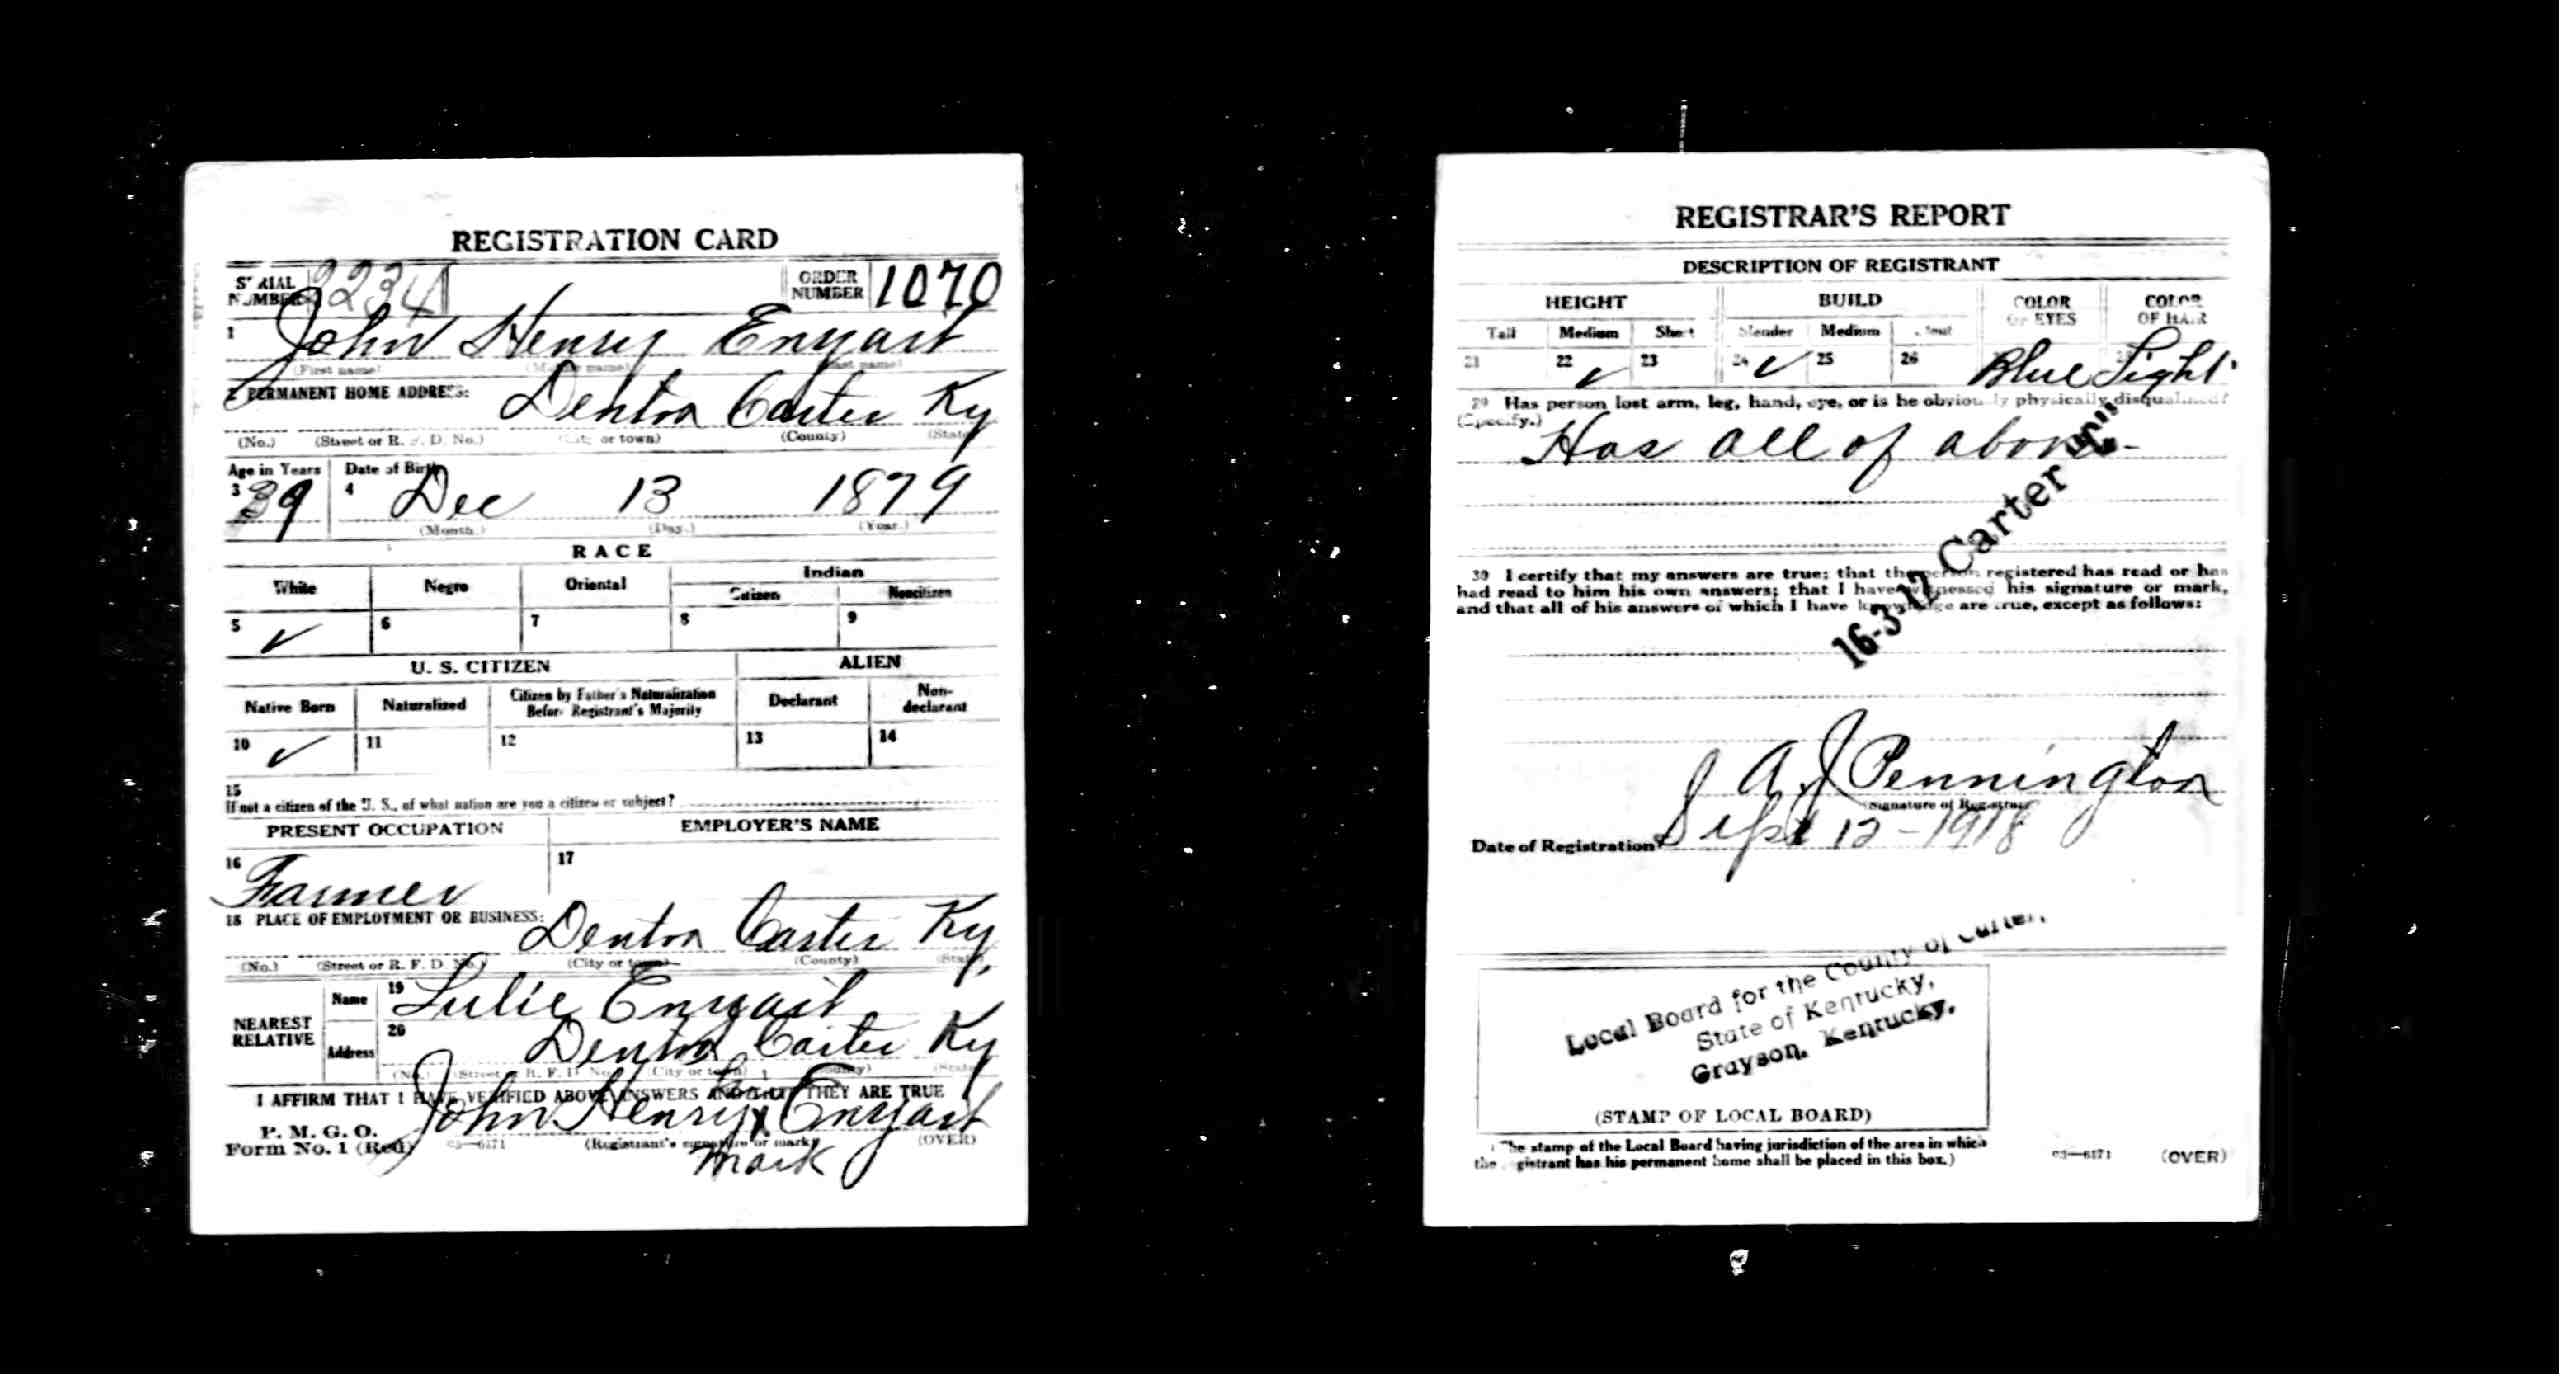 REGISTRATION CARD
SERIAL NUMBER 2234 ORDER NUMBER 1070
1 John Henry Enyart
(First name) (Middle name) (Last name)
2 PERMANENT HOME ADDRESS: Denton Carter Ky
(No.) (Street or R. F. D. No.) (City or town) (County) (State)
Age in Years Date of Birth
3 39 4 Dec 13 1879
(Month.) (Day.) (Year.)
RACE
White Negro Oriental Indian
Citizen Noncitizen
5 ✓ 6 7 8 9
U. S. CITIZEN ALIEN
Native Born Naturalized Citizen by Father's Naturalization Before Registrant's Majority Declarant Non-declarant
10 ✓ 11 12 13 14
15
If not a citizen of the U. S., of what nation are you a citizen or subject?
PRESENT OCCUPATION EMPLOYER'S NAME
16 Farmer 17
18 PLACE OF EMPLOYMENT OR BUSINESS: Denton Carter Ky,
(No.) (Street or R. F. D. No.) (City or town) (County) (State)
NEAREST RELATIVE Name 19 Lulie Enyart
Address 20 Denton Carter Ky
(No.) (Street or R. F. D. No.) (City or town) (County) (State)
I AFFIRM THAT I HAVE VERIFIED ABOVE ANSWERS AND THAT THEY ARE TRUE
his
John Henry x Enyart
P. M. G. O.
Form No. 1 (Red) 03—6171 (Registrant's signature or mark) (OVER)
mark
REGISTRAR'S REPORT
DESCRIPTION OF REGISTRANT
HEIGHT BUILD COLOR OF EYES COLOR OF HAIR
Tall Medium Short Slender Medium Stout
21 22 ✓ 23 24 ✓ 25 26 Blue Light
29 Has person lost arm, leg, hand, eye, or is he obviously physically disqualified?
(Specify.)
Has all of above
16-3-12 Carter
30 I certify that my answers are true; that the person registered has read or has
had read to him his own answers; that I have witnessed his signature or mark,
and that all of his answers of which I have knowledge are true, except as follows:
A J Pennington
(Signature of Registrar)
Date of Registration Sept 12-1918
Local Board for the County of Carter,
State of Kentucky,
Grayson, Kentucky.
(STAMP OF LOCAL BOARD)
(The stamp of the Local Board having jurisdiction of the area in which
the registrant has his permanent home shall be placed in this box.)
03—6171 (OVER)